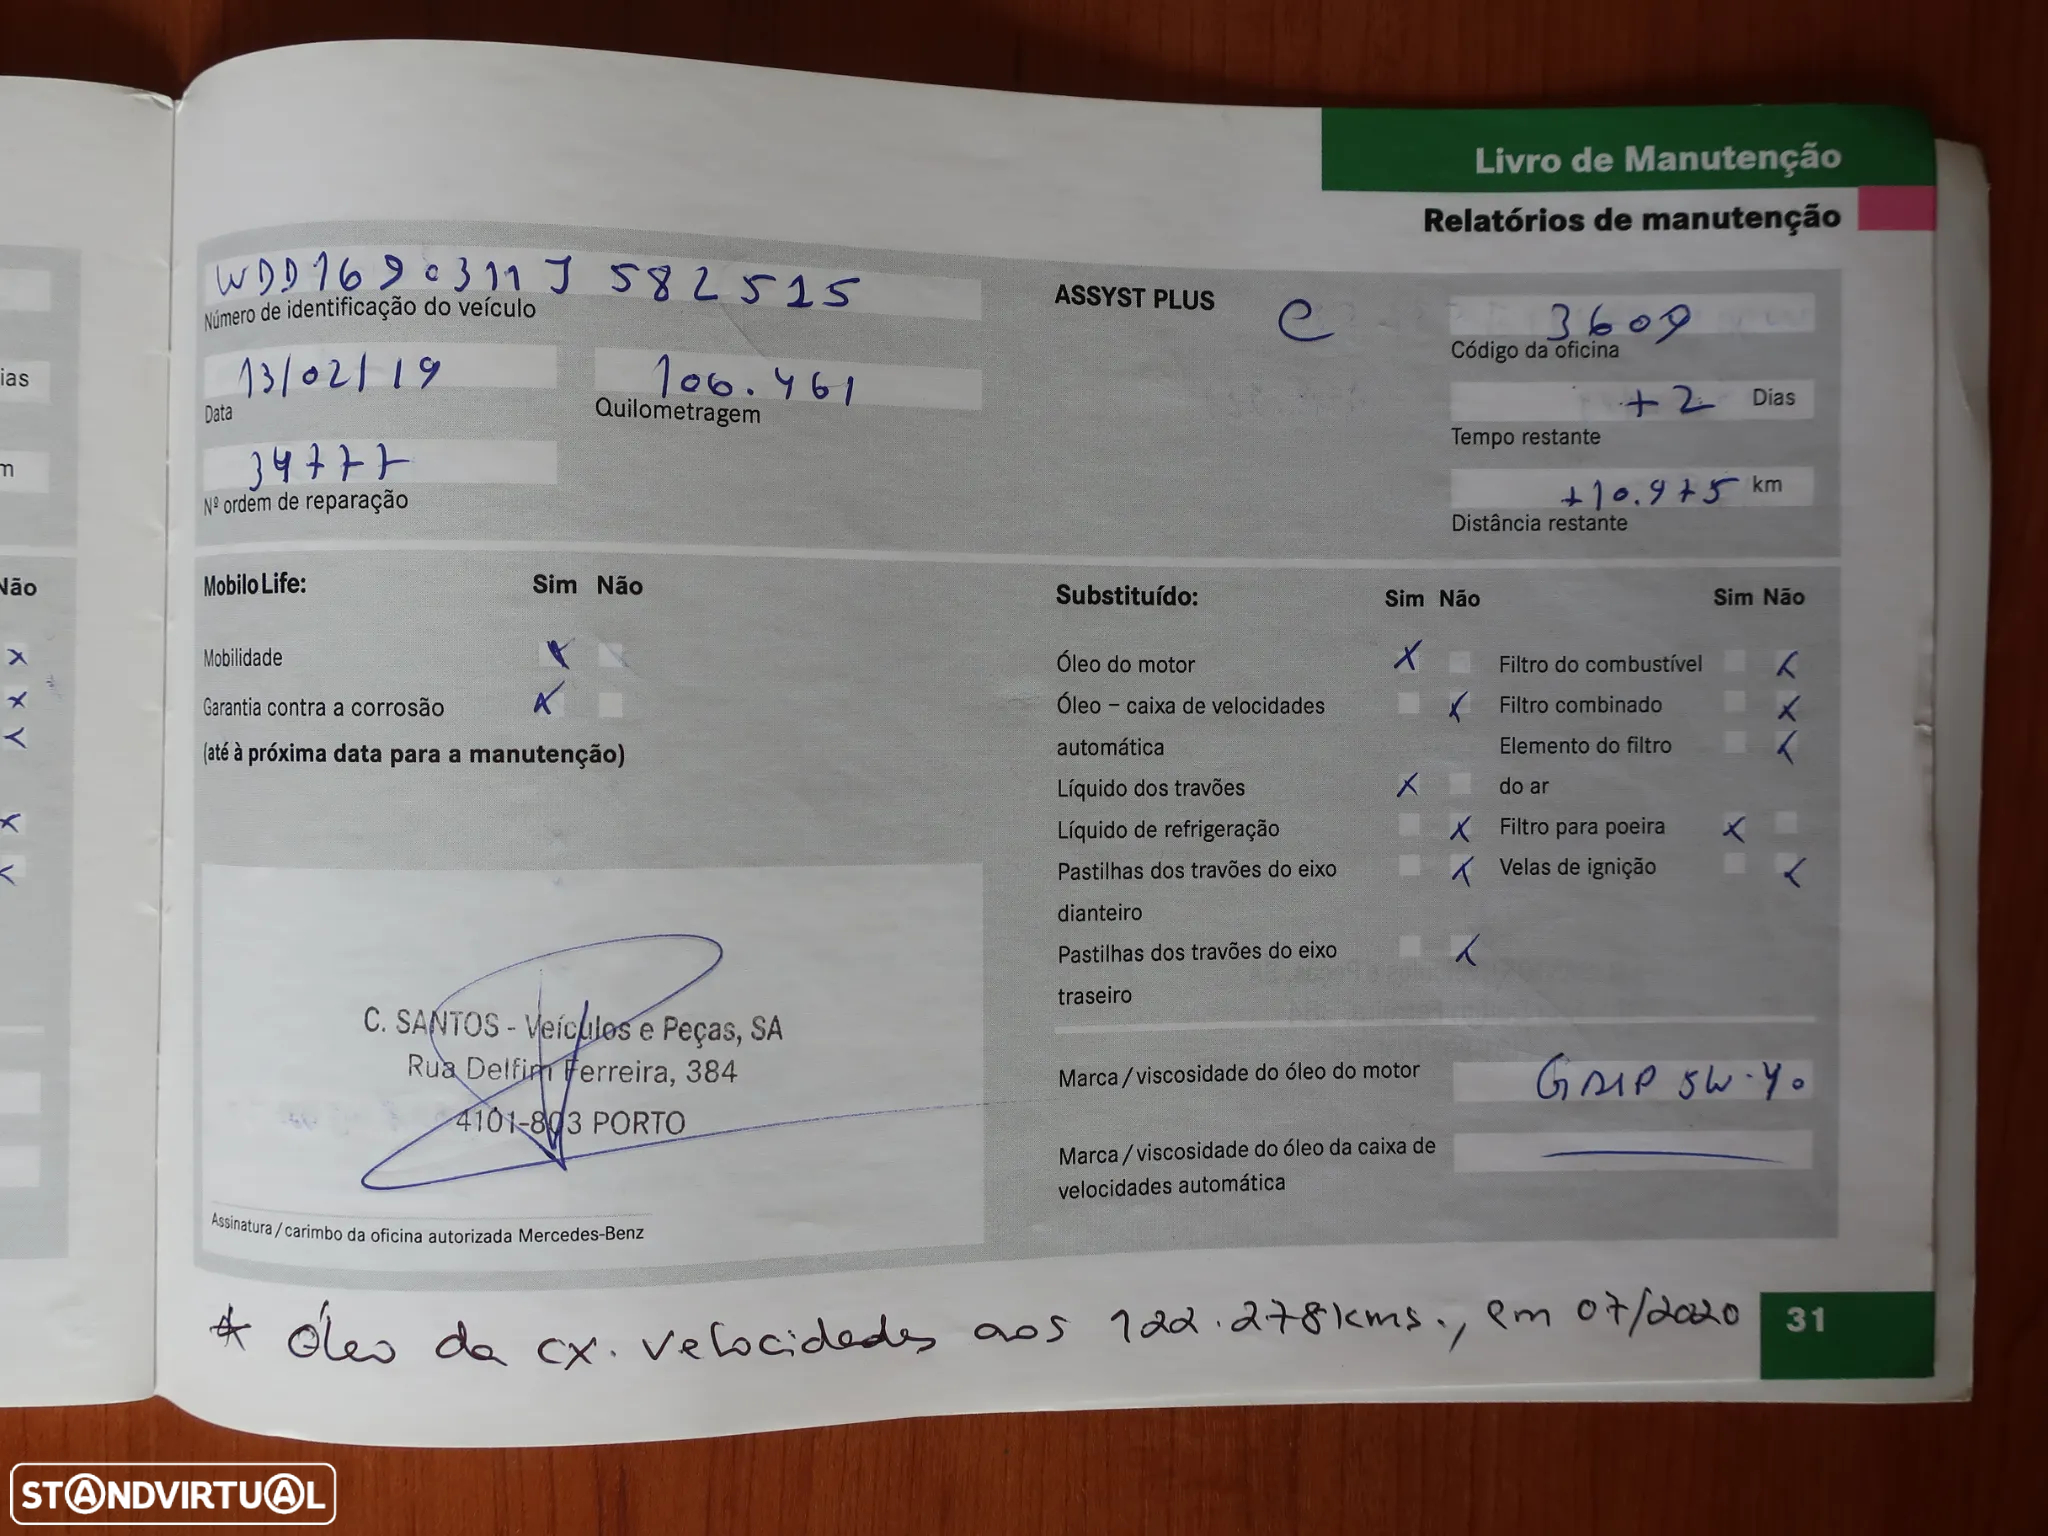 Livro de Manutenção
Relatórios de manutenção
WDD1690311J582515
Número de identificação do veículo
13/02/19
Data
106.461
Quilometragem
34777
Nº ordem de reparação
ASSYST PLUS
C
3609
Código da oficina
+2 Dias
Tempo restante
+10.975 km
Distância restante
ias
m
Não
x
x
x
x
x
Mobilo Life: Sim Não
Mobilidade x
Garantia contra a corrosão x
(até à próxima data para a manutenção)
C. SANTOS - Veículos e Peças, SA
Rua Delfim Ferreira, 384
4101-803 PORTO
Assinatura / carimbo da oficina autorizada Mercedes-Benz
Substituído: Sim Não
Óleo do motor x
Óleo – caixa de velocidades x
automática
Líquido dos travões x
Líquido de refrigeração x
Pastilhas dos travões do eixo x
dianteiro
Pastilhas dos travões do eixo x
traseiro
Sim Não
Filtro do combustível x
Filtro combinado x
Elemento do filtro x
do ar
Filtro para poeira x
Velas de ignição x
Marca / viscosidade do óleo do motor
5W-40
Marca / viscosidade do óleo da caixa de
velocidades automática
* Óleo da cx. velocidades aos 122.278kms., em 07/2020
31
STANDVIRTUAL